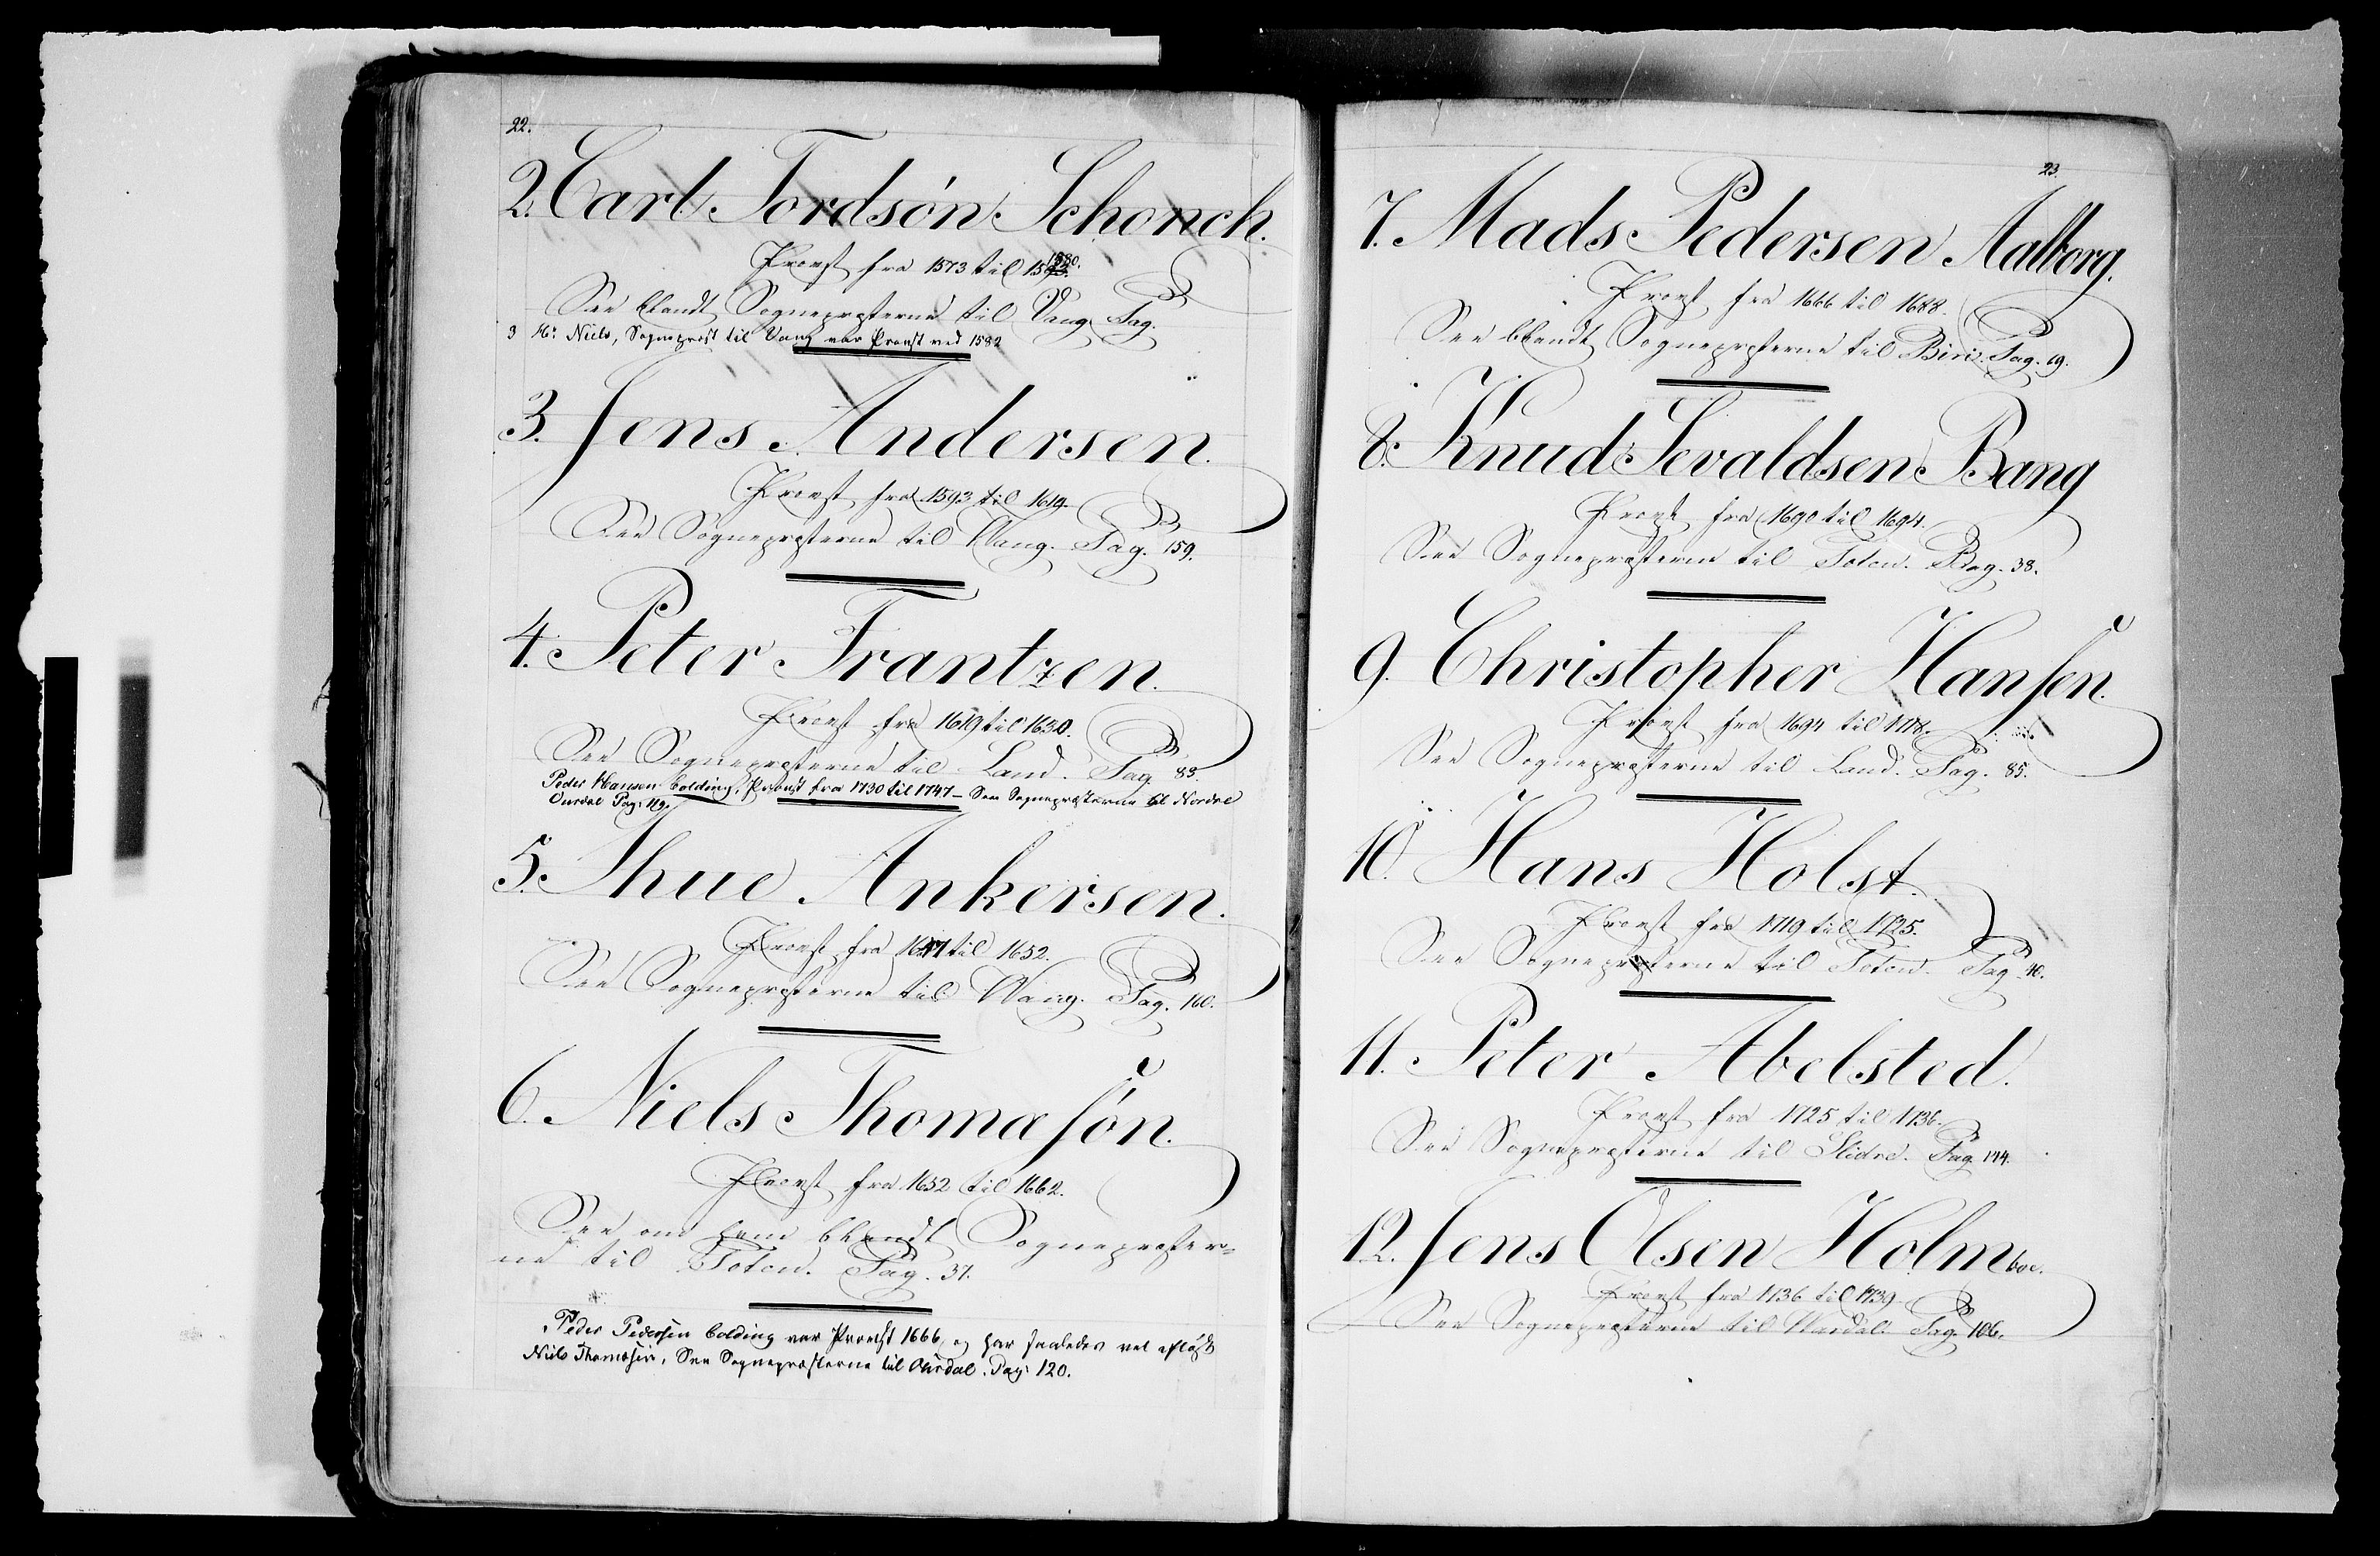 22.
2. Carl Tordsön Schonch.
Provst fra 1573 til 1580.
See blandt Sognepræsterne til Vang Pag.
3 Hr. Niels, Sognepræst til Vang var Provst ved 1582
3. Jens Andersen.
Provst fra 1593 til 1619.
See Sognepræsterne til Wang. Pag. 159.
4. Peter Frantzen.
Provst fra 1619 til 1630.
See Sognepræsterne til Land. Pag. 83.
Peder Hansen Colding. Provst fra 1730 til 1747 – See Sognepræsterne til Nordre
Ourdal Pag: 119.
5. Thue Ankersen.
Provst fra 1641 til 1652.
See Sognepræsterne til Wang. Pag. 160.
6. Niels Thomæsön.
Provst fra 1652 til 1662.
See om ham blandt Sognepræster=
ne til Toten. Pag. 37.
Peder Pedersen Colding var Provst 1666 og har saaledes vel afløst
Niels Thomæsen, See Sognepræsterne til Ourdal. Pag: 120.
23.
7. Mads Pedersen Aalborg.
Provst fra 1666 til 1688.
See blandt Sognepræsterne til Biri. Pag. 19.
8. Knud Sevaldsen Bang
Provst fra 1690 til 1694.
See Sognepræsterne til Toten. Pag. 38.
9. Christopher Hansen.
Provst fra 1694 til 1718.
See Sognepræsterne til Land. Pag. 85.
10. Hans Holst.
Provst fra 1719 til 1725.
See Sognepræsterne til Toten. Pag. 40.
11. Peter Abelsted.
Provst fra 1725 til 1736.
See Sognepræsterne til Slidre. Pag. 144.
12. Jens Olsen Holmboe.
Provst fra 1736 til 1739.
See Sognepræsterne til Wardal. Pag. 106.